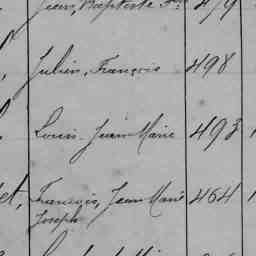 Jean, Baptiste 479
Julien, François 498
Louis-Jean Marie 493
et, François, Jean Marie 464
Joseph